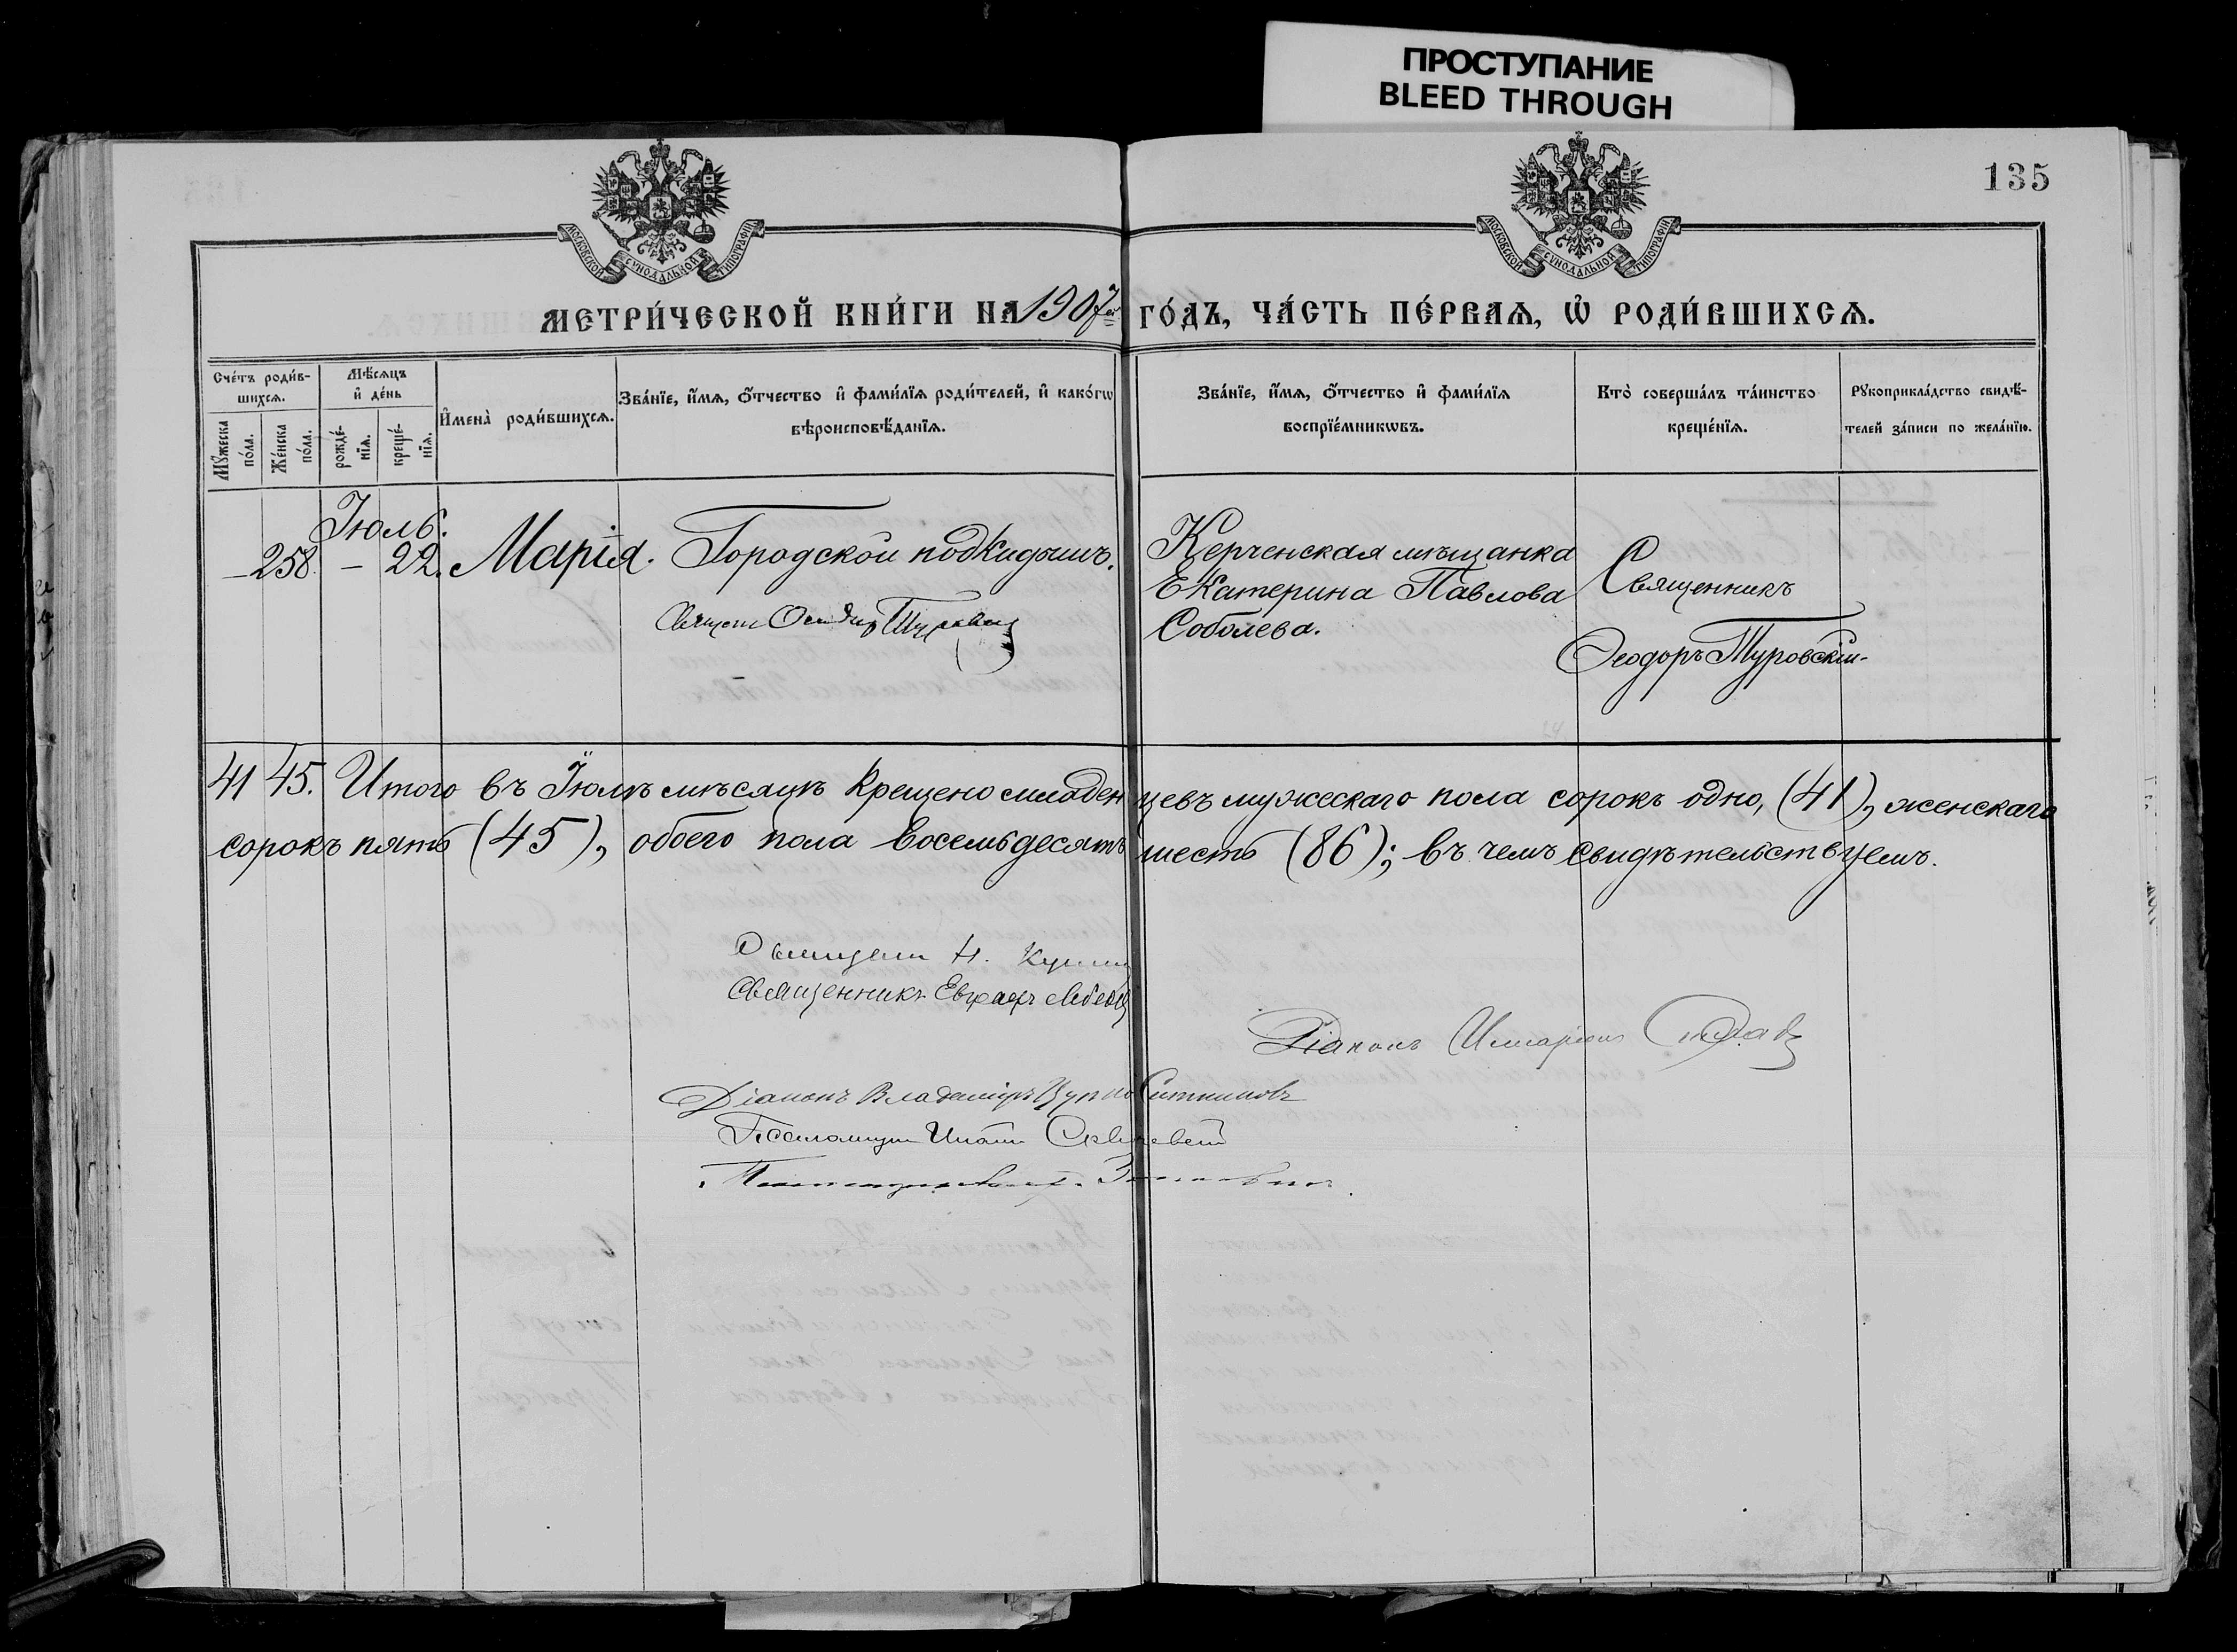 ПРОСТУПАНИЕ
BLEED THROUGH
135
МОСКОВСКОЙ СУНОДАЛЬНОЙ ТИПОГРАФІИ
МОСКОВСКОЙ СУНОДАЛЬНОЙ ТИПОГРАФІИ
МЕТРИ́ЧЕСКОЙ КНИ́ГИ НА 1907й ГО́ДЪ, ЧА́СТЬ ПЕ́РВАѦ, Ѡ҆ РОДИ́ВШИХСѦ.
Сче́тъ роди́в-
шихсѧ.
Мꙋ́жеска по́ла.
Же́нска по́ла.
Мѣ́сѧцъ
и҆ де́нь
рожде́-
нїѧ.
креще́-
нїѧ.
И҆мена̀ роди́вшихсѧ.
Зва́нїе, и҆́мѧ, ѻ҆́тчество и҆ фами́лїѧ роди́телей, и҆ како́гѡ
вѣроисповѣ́данїѧ.
Зва́нїе, и҆́мѧ, ѻ҆́тчество и҆ фами́лїѧ
воспрїе́мникѡвъ.
Кто̀ соверша́лъ та́инство
креще́нїѧ.
Рꙋкоприкла́дство свидѣ́-
телей за́писи по жела́нїю.
Іюль.
– 258. – 22. Марія. Городской подкидышъ.
Керченская мѣщанка
Екатерина Павлова
Соболева.
Священникъ
Ѳеодоръ Туровскій
41 45. Итого въ Іюлѣ мѣсяцѣ крещено младенцевъ мужескаго пола сорокъ одно, (41), женскаго
сорокъ пять (45), обоего пола восемьдесятъ шесть (86); въ чемъ свидѣтельствуемъ.
Священникъ
Діаконъ Иларіонъ
Діаконъ Владиміръ
Псаломщикъ